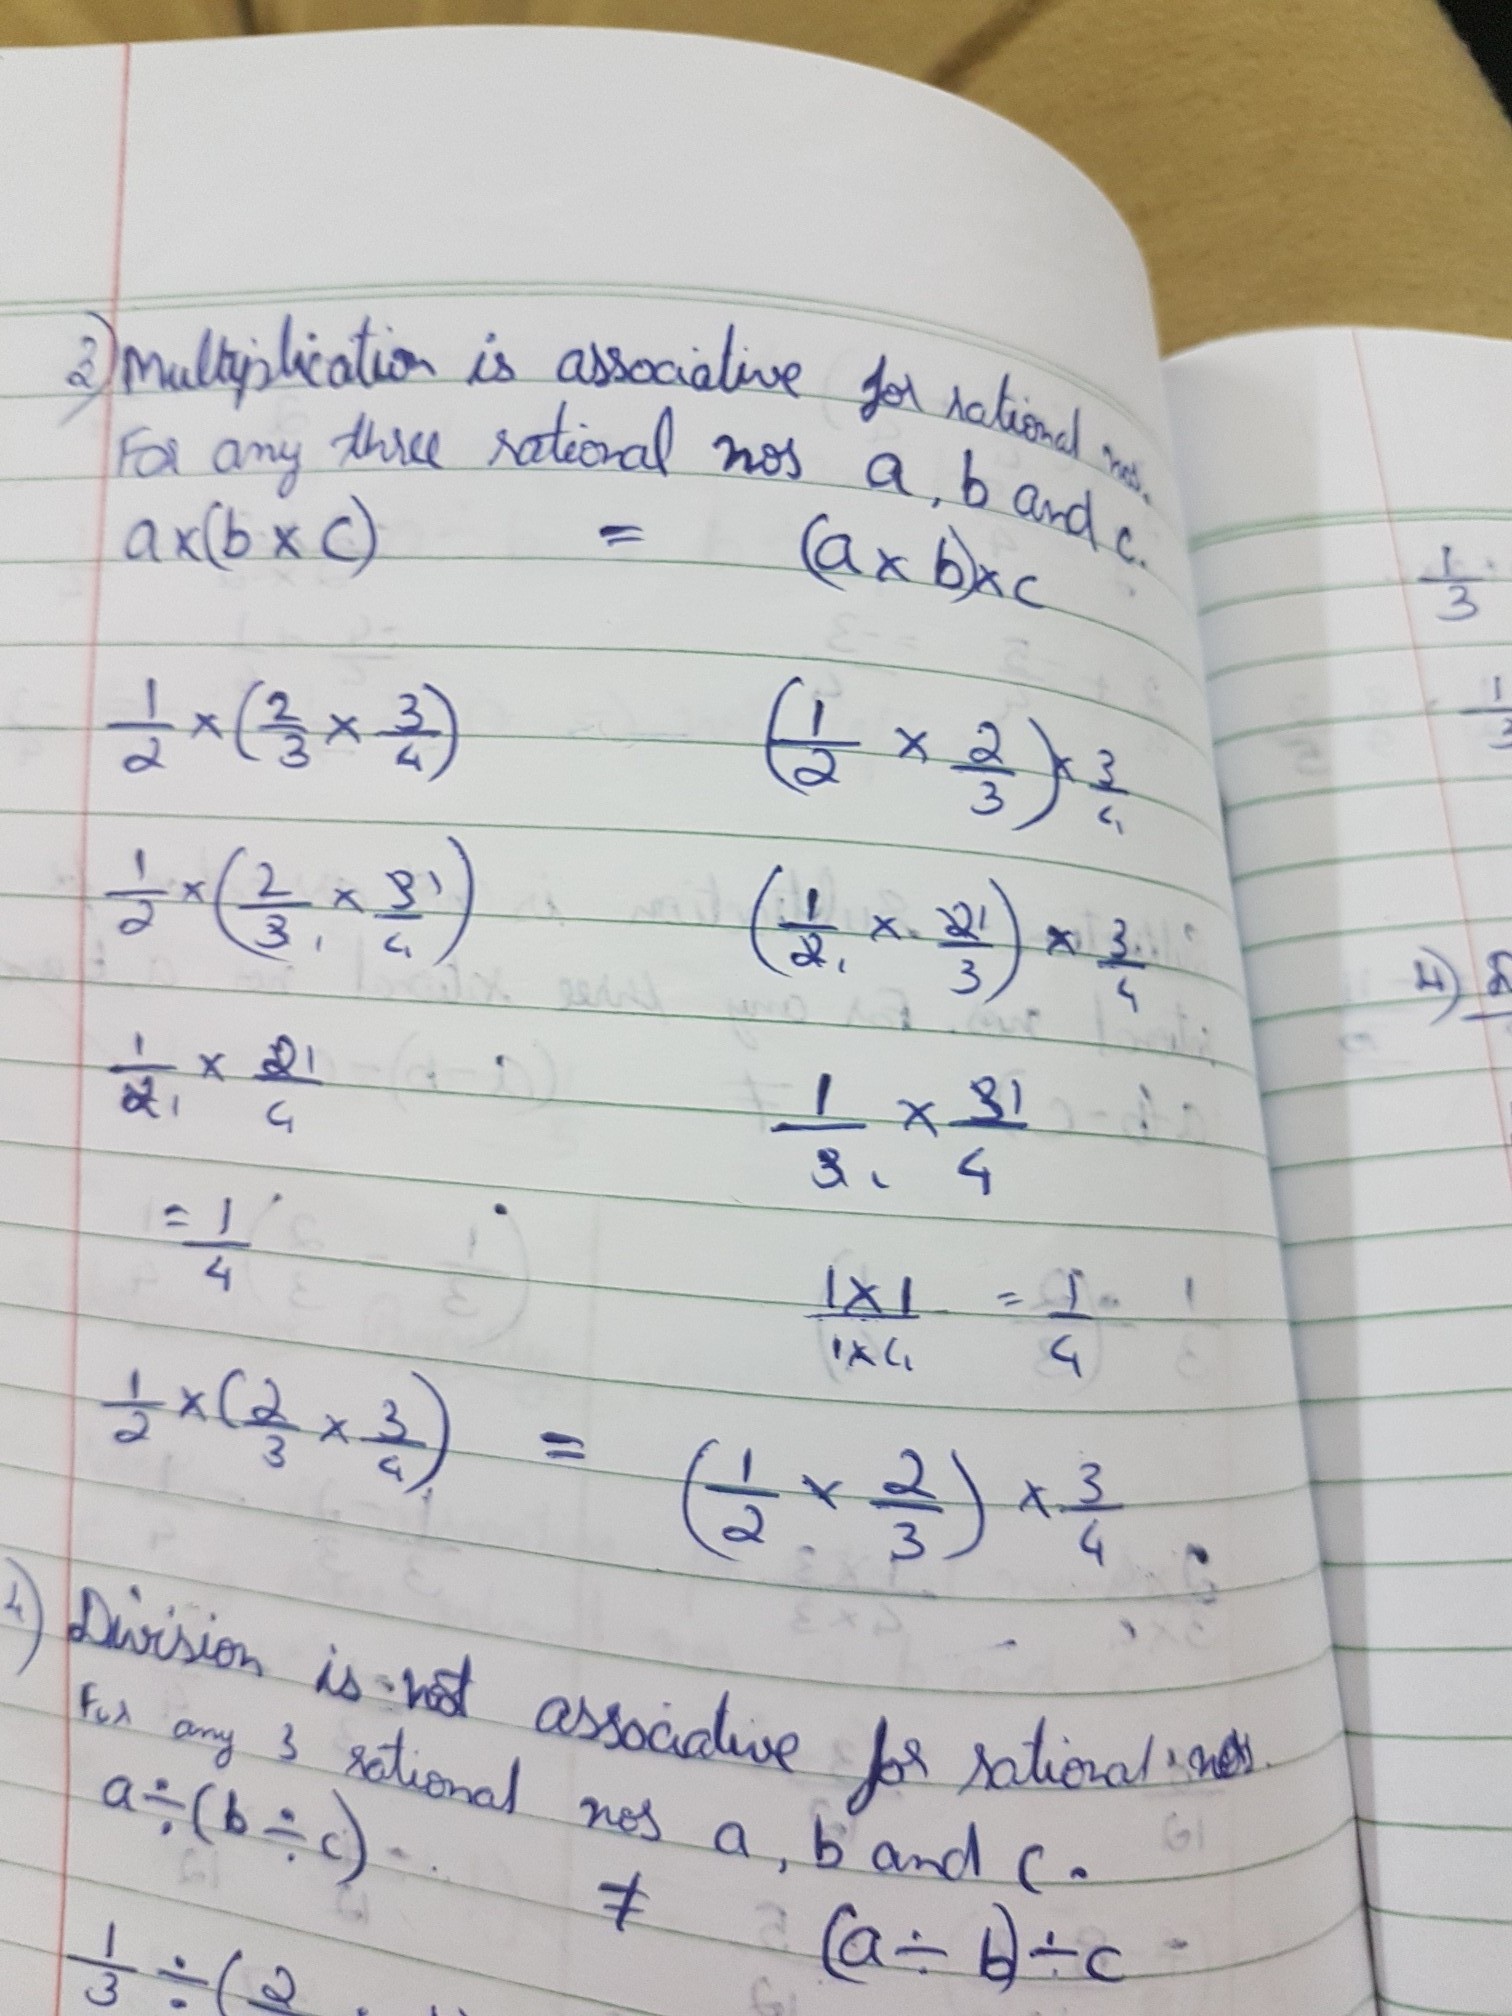 3) Multiplication is associative for rational nos.
For any three rational nos a, b and c.
a×(b×c) = (a×b)×c
1/2 × (2/3 × 3/4) (1/2 × 2/3) × 3/4
1/2 × (2/3 1 × 3 1/4) (1/2 1 × 2 1/3) × 3/4
1/2 1 × 2 1/4 1/3 1 × 3 1/4
= 1/4
1×1/1×4 = 1/4
1/2 × (2/3 × 3/4) = (1/2 × 2/3) × 3/4
4) Division is not associative for rational nos.
For any 3 rational nos a, b and c.
a÷(b÷c) ≠ (a÷b)÷c
1/3 ÷ (2
1/3
1/3
4)